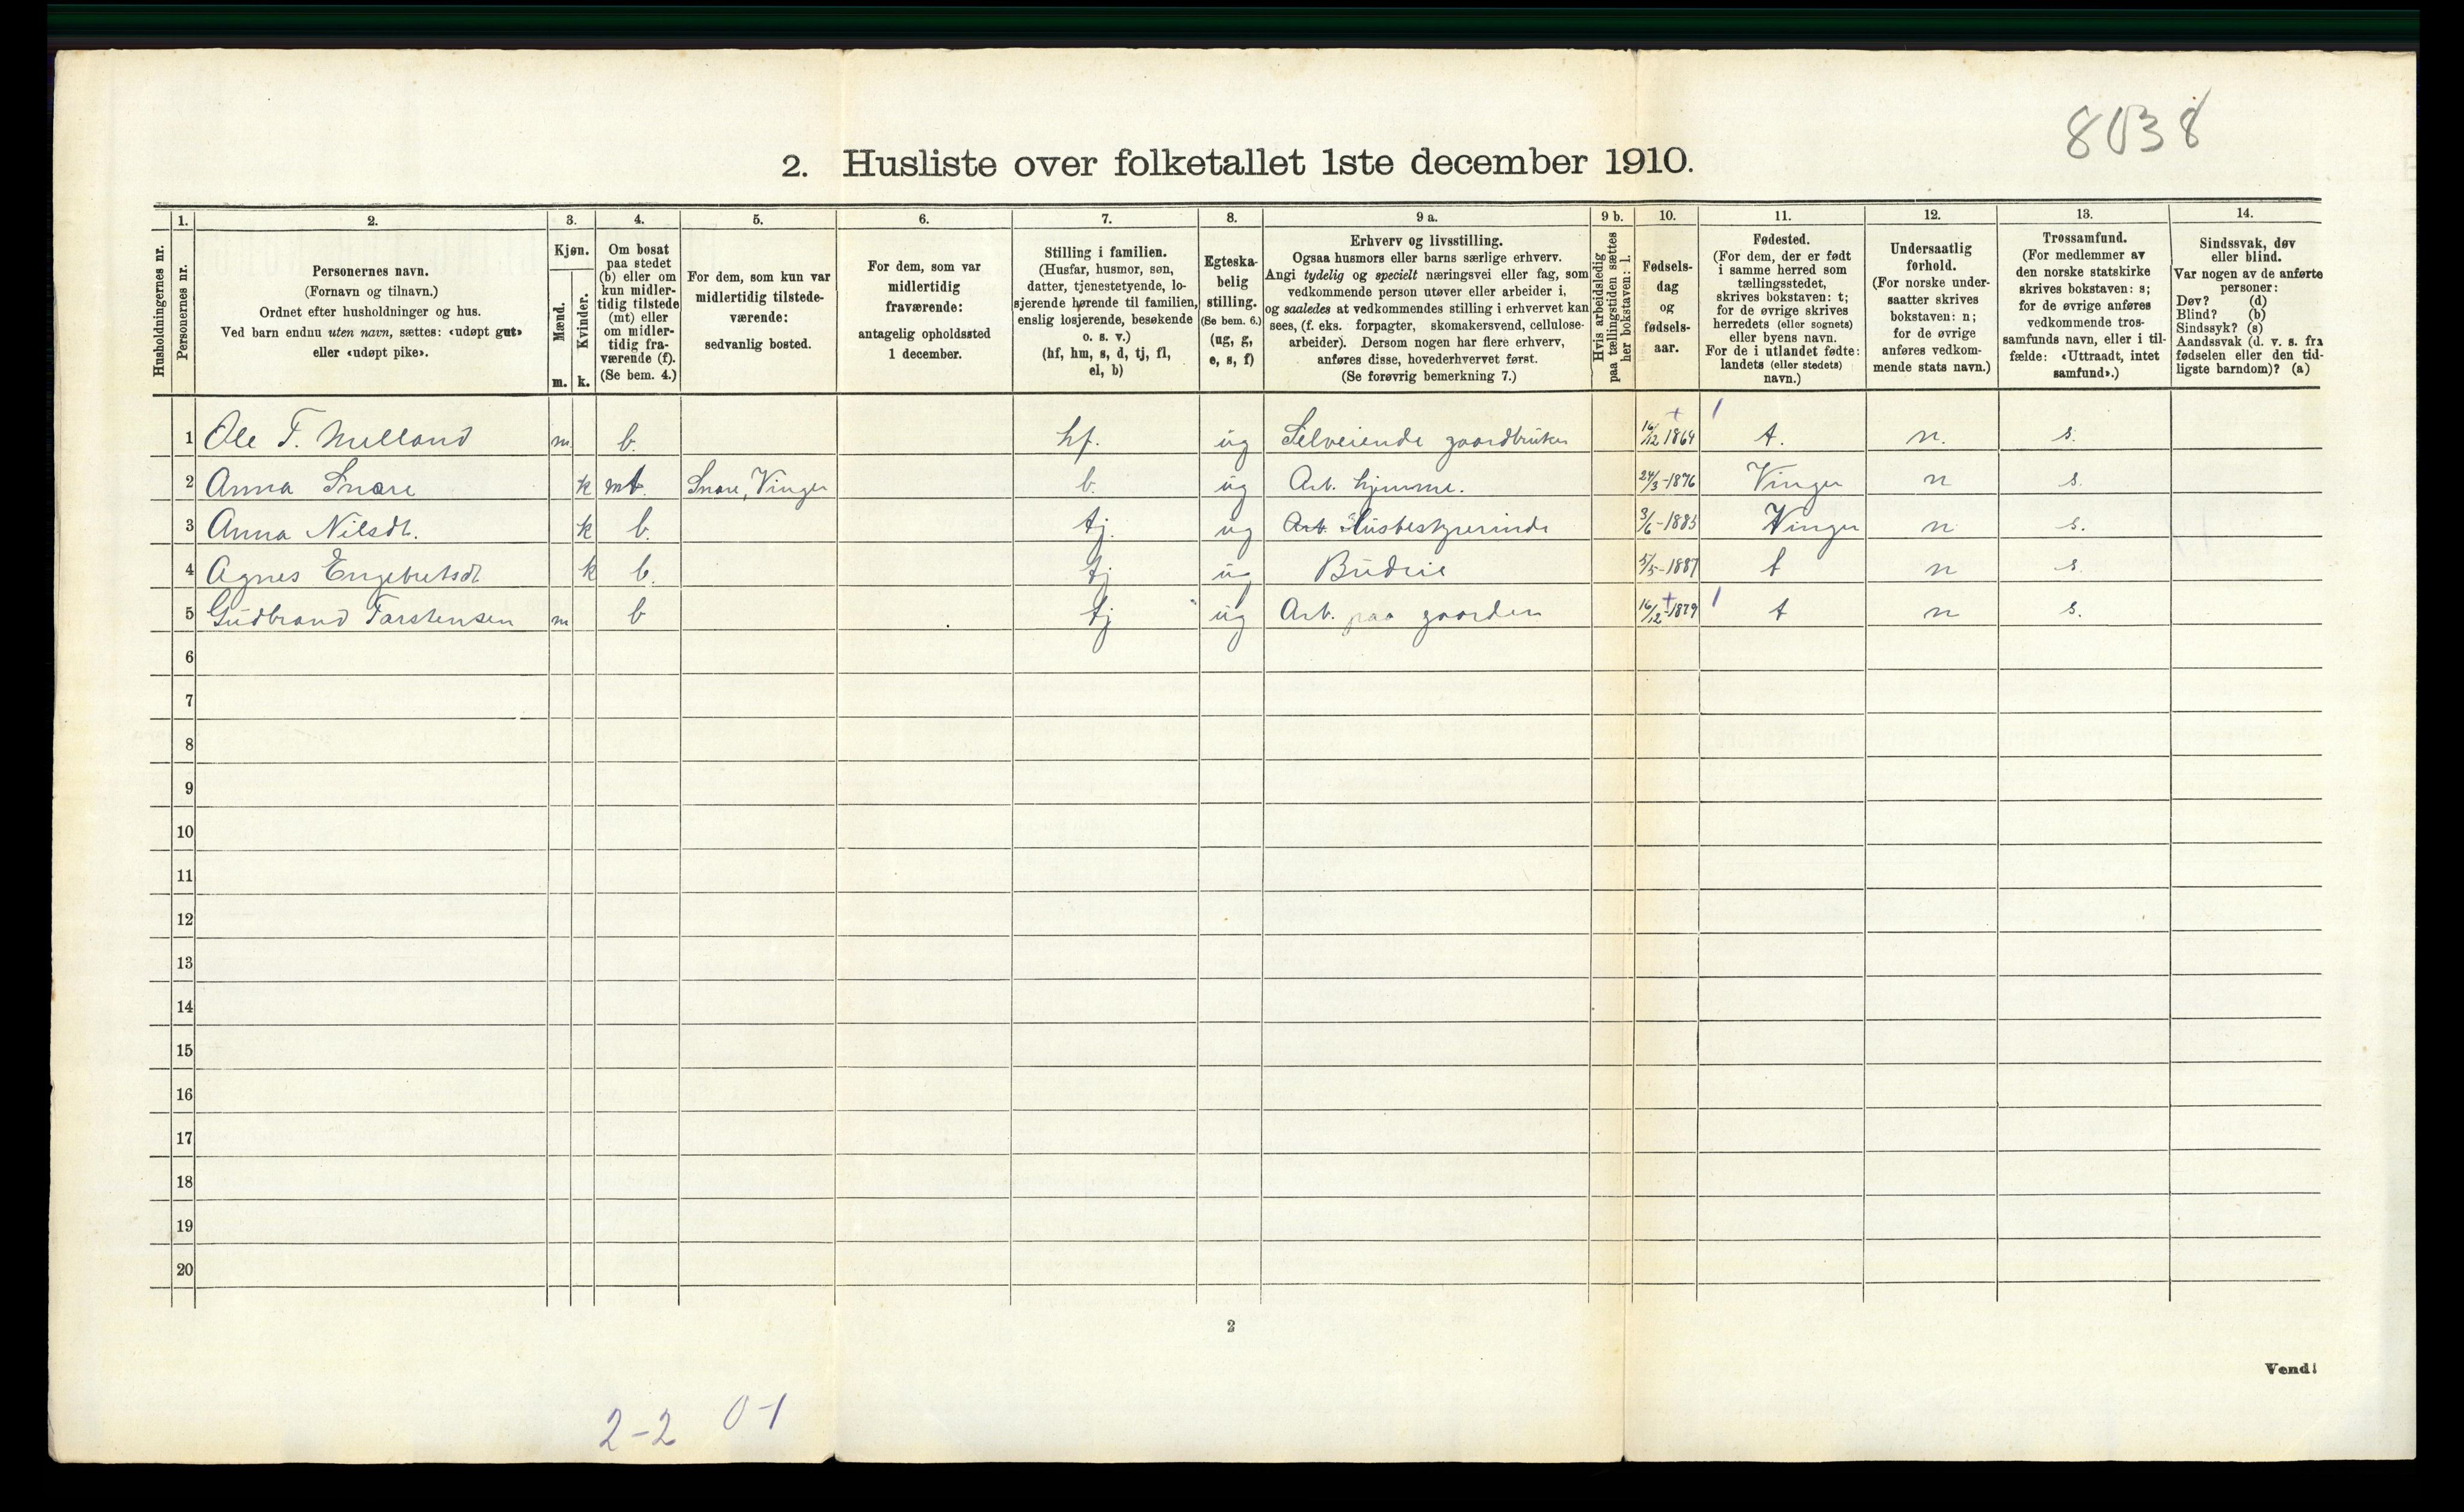 8038
2. Husliste over folketallet 1ste december 1910.
Husholdningernes nr.
1.
Personernes nr.
2.
Personernes navn.
(Fornavn og tilnavn.)
Ordnet efter husholdninger og hus.
Ved barn endnu uten navn, sættes: «udøpt gut»
eller «udøpt pike».
3.
Kjøn.
Mænd.
m.
Kvinder.
k.
4.
Om bosat
paa stedet
(b) eller om
kun midler-
tidig tilstede
(mt) eller
om midler-
tidig fra-
værende (f).
(Se bem. 4.)
5.
For dem, som kun var
midlertidig tilstede-
værende:
sedvanlig bosted.
6.
For dem, som var
midlertidig
fraværende:
antagelig opholdssted
1 december.
7.
Stilling i familien.
(Husfar, husmor, søn,
datter, tjenestetyende, lo-
sjerende hørende til familien,
enslig losjerende, besøkende
o. s. v.)
(hf, hm, s, d, tj, fl,
el, b)
8.
Egteska-
belig
stilling.
(Se bem. 6.)
(ug, g,
e, s, f)
9 a.
Erhverv og livsstilling.
Ogsaa husmors eller barns særlige erhverv.
Angi tydelig og specielt næringsvei eller fag, som
vedkommende person utøver eller arbeider i,
og saaledes at vedkommendes stilling i erhvervet kan
sees, (f. eks. forpagter, skomakersvend, cellulose-
arbeider). Dersom nogen har flere erhverv,
anføres disse, hovederhvervet først.
(Se forøvrig bemerkning 7.)
9 b.
Hvis arbeidsledig
paa tællingstiden sættes
her bokstaven: l.
10.
Fødsels-
dag
og
fødsels-
aar.
11.
Fødested.
(For dem, der er født
i samme herred som
tællingsstedet,
skrives bokstaven: t;
for de øvrige skrives
herredets (eller sognets)
eller byens navn.
For de i utlandet fødte:
landets (eller stedets)
navn.)
12.
Undersaatlig
forhold.
(For norske under-
saatter skrives
bokstaven: n;
for de øvrige
anføres vedkom-
mende stats navn.)
13.
Trossamfund.
(For medlemmer av
den norske statskirke
skrives bokstaven: s;
for de øvrige anføres
vedkommende tros-
samfunds navn, eller i til-
fælde: «Uttraadt, intet
samfund».)
14.
Sindssvak, døv
eller blind.
Var nogen av de anførte
personer:
Døv? (d)
Blind? (b)
Sindssyk? (s)
Aandssvak (d. v. s. fra
fødselen eller den tid-
ligste barndom)? (a)
1 Ole T. Melland m b. hf. ug Selveiende gaardbruker 16/12 1864 t. n. s.
2 Anna Snare k mt. Snare, Vinger b. ug Arb. hjemme. 24/3-1876 Vinger n s.
3 Anna Nilsdt. k b. tj. ug Arb. Husbestyrerinde 3/6-1885 Vinger n s.
4 Agnes Engebretsdt k b. tj ug Budeie 5/5-1887 t n s.
5 Gudbrand Tarstensen m b tj ug Arb. paa gaarden 16/12-1879 t n s.
6
7
8
9
10
11
12
13
14
15
16
17
18
19
20
2
Vend!
2-2 0-1